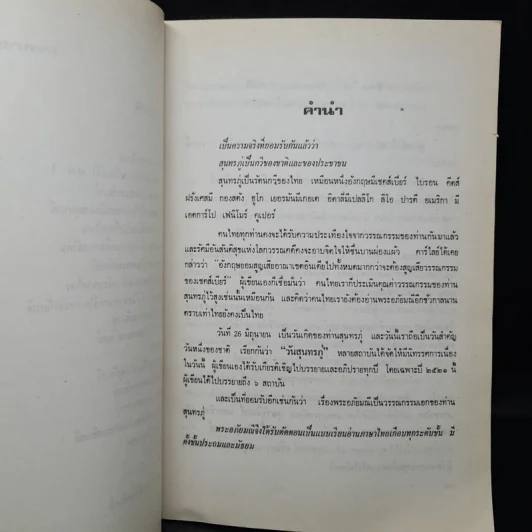 คำนำ
เป็นความจริงที่ยอมรับกันแล้วว่า
สุนทรภู่เป็นกวีของชาติและของประชาชน
สุนทรภู่เป็นรัตนกวีของไทย เหมือนหนึ่งอังกฤษมีเชคส์เปียร์ ไบรอน คีตส์
ฝรั่งเศสมี กองสตัง ฮูโก เยอรมันมีเกอเต อิตาลีมีเปลลิโก ลีโอ ปาร์ดี อเมริกา มี
เอดการ์โป เฟนิโมร์ คูเปอร์
คนไทยทุกท่านคงจะได้รับความประเทืองใจจากวรรณกรรมของท่านกันมาแล้ว
และรัศมีอันสันติสุขแห่งโลกวรรณคดีคงจะอาบจิตใจให้ชื่นบานผ่องแผ้ว คาร์ไลย์ได้เคย
กล่าวว่า "อังกฤษยอมสูญเสียอาณาเขตอินเดียไปทั้งหมดมากกว่าจะต้องสูญเสียวรรณกรรม
ของเชคส์เปียร์" ผู้เขียนเองก็เชื่อมั่นว่า คนไทยเราก็ประเมินคุณค่าวรรณกรรมของท่าน
สุนทรภู่ไว้สูงเช่นนั้นเหมือนกัน และคิดว่าคนไทยเรายังต้องอ่านพระอภัยมณีอีกชั่วกาลนาน
ตราบเท่าไทยยังคงเป็นไทย
วันที่ 26 มิถุนายน เป็นวันเกิดของท่านสุนทรภู่ และวันนี้เราถือเป็นวันสำคัญ
วันหนึ่งของชาติ เรียกกันว่า "วันสุนทรภู่" หลายสถาบันได้จัดให้มีนิทรรศการเนื่อง
ในวันนี้ ผู้เขียนเองได้รับเกียรติเชิญไปบรรยายและอภิปรายทุกปี โดยเฉพาะปี ๒๕๒๑ นี้
ผู้เขียนได้ไปบรรยายถึง ๖ สถาบัน
และเป็นที่ยอมรับอีกเช่นกันว่า เรื่องพระอภัยมณีเป็นวรรณกรรมเอกของท่าน
สุนทรภู่
พระอภัยมณีจึงได้รับคัดตอนเป็นแบบเรียนอ่านภาษาไทยเกือบทุกระดับชั้น มี
ตั้งชั้นประถมและมัธยม